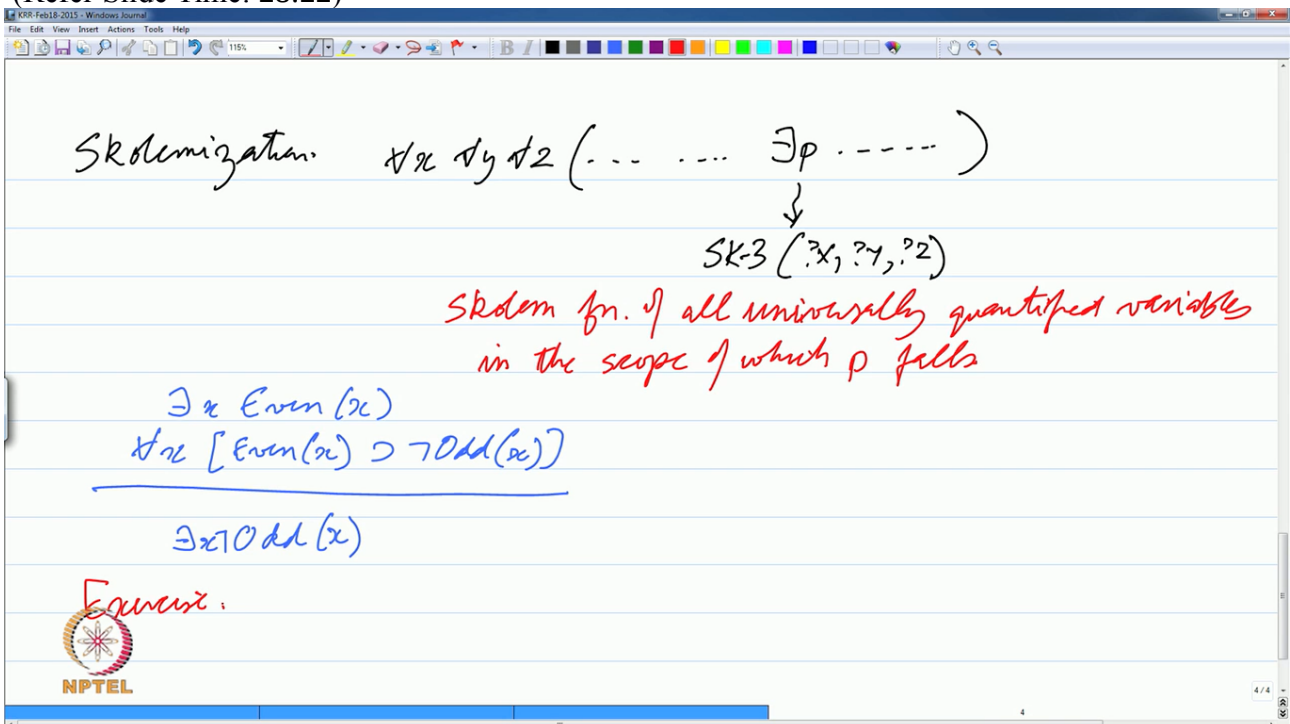 (Refer Slide Time: 28:22)
KRR-Feb18-2015 - Windows Journal
File Edit View Insert Actions Tools Help
115%
B I
Skolemization. ∀x ∀y ∀z (... .... ∃p ......)
SK-3 (?x, ?y, ?z)
Skolem fn. of all universally quantified variables
in the scope of which p falls
∃x Even(x)
∀x [Even(x) ⊃ ¬Odd(x)]
∃x¬Odd(x)
Exercise.
NPTEL
4 / 4
4